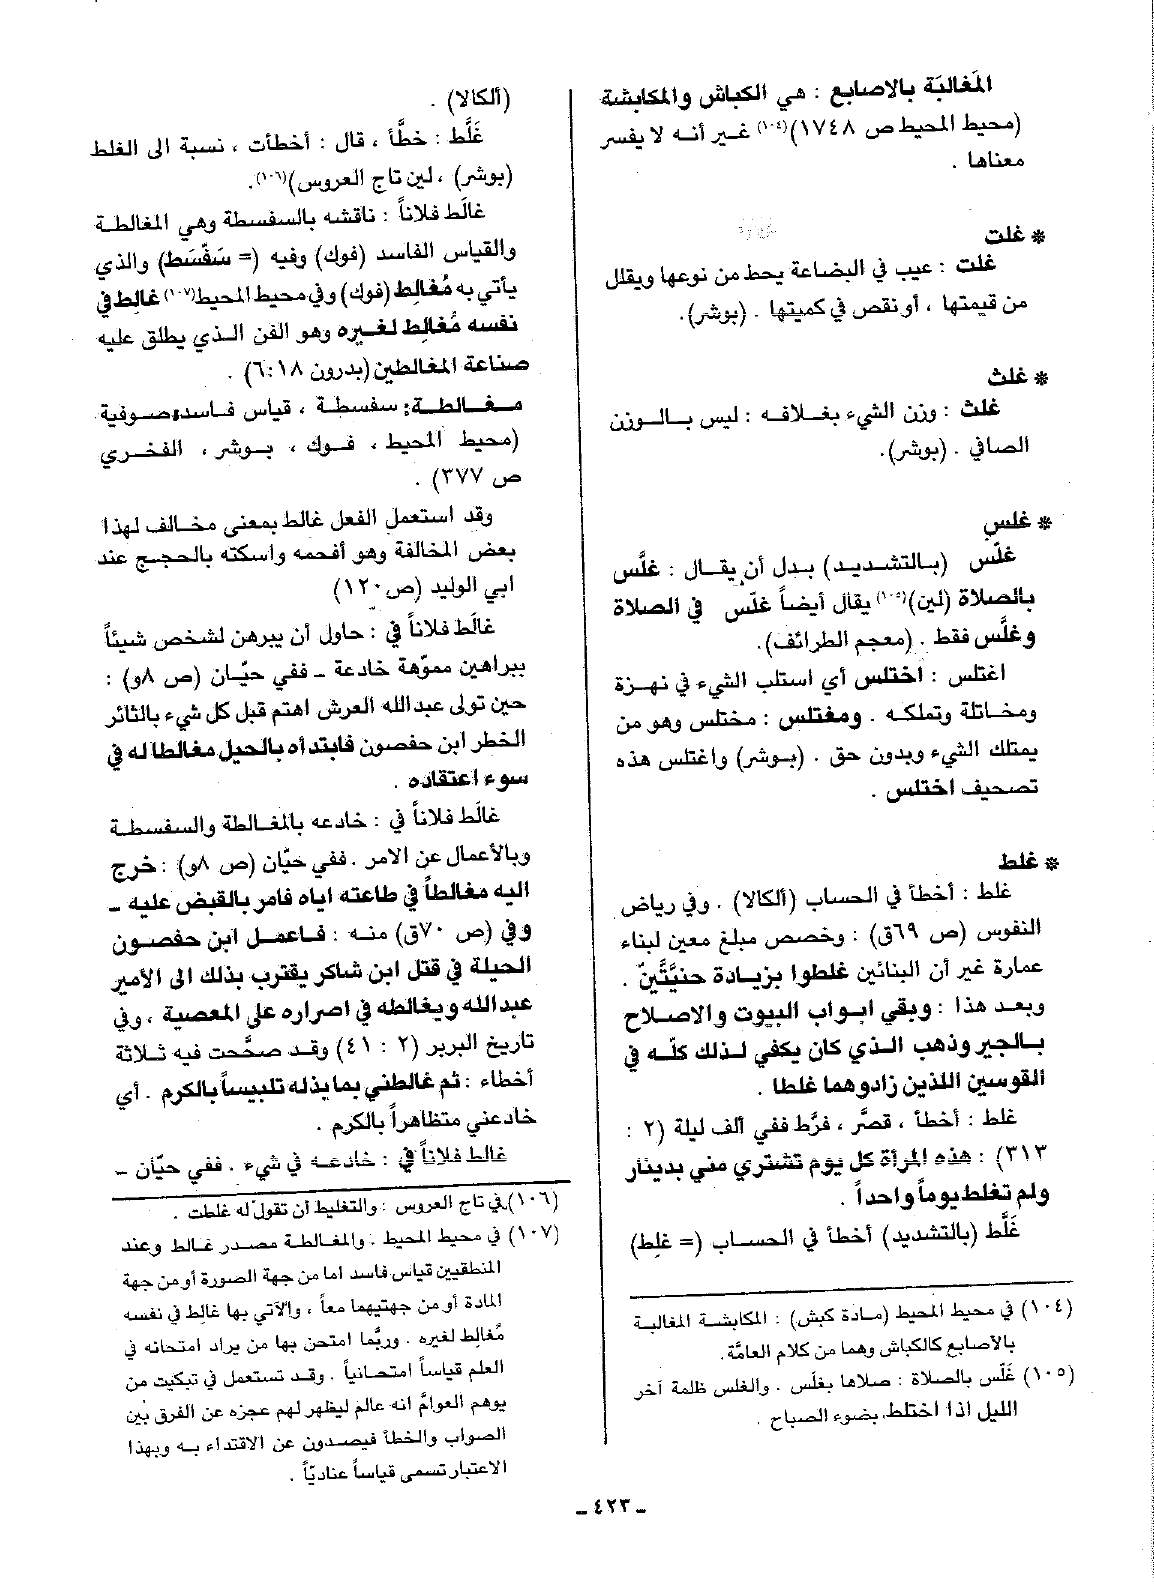 المَغالبَة بالاصابع : هي الكباش والمكابشة
(محيط المحيط ص ١٧٤٨)(١٠٤) غير أنه لا يفسر
معناها .
* غلت
غلت : عيب في البضاعة يحط من نوعها ويقلل
من قيمتها ، أو نقص في كميتها . (بوشر).
* غلث
غلث : وزن الشيء بغلافه : ليس بالوزن
الصافي . (بوشر).
* غلس
غلّس (بالتشديد) بدل أن يقال : غلَّس
بالصلاة (لين)(١٠٥) يقال أيضاً غلّس في الصلاة
وغلَّس فقط . (معجم الطرائف).
اغتلس : اختلس أي استلب الشيء في نهزة
ومخاتلة وتملكه . ومغتلس : مختلس وهو من
يمتلك الشيء وبدون حق . (بوشر) واغتلس هذه
تصحيف اختلس .
* غلط
غلط : أخطأ في الحساب (ألكالا) . وفي رياض
النفوس (ص ٦٩ق) : وخصص مبلغ معين لبناء
عمارة غير أن البنائين غلطوا بزيادة حنيَّتَينْ .
وبعد هذا : وبقي ابواب البيوت والاصلاح
بالجير وذهب الذي كان يكفي لذلك كلّه في
القوسين اللذين زادوهما غلطا .
غلط : أخطأ ، قصَّر ، فرَّط ففي ألف ليلة (٢ :
٣١٣) : هذه المرأة كل يوم تشتري مني بدينار
ولم تغلط يوماً واحداً .
غَلَّط (بالتشديد) أخطأ في الحساب (= غلِط)
(١٠٤) في محيط المحيط (مادة كبش) : المكابشة المغالبة
بالأصابع كالكباش وهما من كلام العامَّة.
(١٠٥) غَلّس بالصلاة : صلاها بغلس . والغلس ظلمة آخر
الليل اذا اختلط بضوء الصباح .
(ألكالا) .
غَلَّط : خطَّأ ، قال : أخطأت ، نسبة الى الغلط
(بوشر) ، لين تاج العروس)(١٠٦).
غالَط فلاناً : ناقشه بالسفسطة وهي المغالطة
والقياس الفاسد (فوك) وفيه (= سَفْسَط) والذي
يأتي به مُغالِط (فوك) وفي محيط المحيط(١٠٧) غالِط في
نفسه مُغالِط لغيره وهو الفن الذي يطلق عليه
صناعة المغالطين (بدرون ١٨:٦) .
مغالطة: سفسطة ، قياس فاسد، صوفية
(محيط المحيط ، فوك ، بوشر ، الفخري
ص ٣٧٧) .
وقد استعمل الفعل غالط بمعنى مخالف لهذا
بعض المخالفة وهو أفحمه واسكته بالحجج عند
ابي الوليد (ص ١٢٠)
غالَط فلاناً في : حاول أن يبرهن لشخص شيئاً
ببراهين مموّهة خادعة ـ ففي حيّان (ص ٨و) :
حين تولى عبد الله العرش اهتم قبل كل شيء بالثائر
الخطر ابن حفصون فابتدأه بالحيل مغالطا له في
سوء اعتقاده .
غالَط فلاناً في : خادعه بالمغالطة والسفسطة
وبالأعمال عن الامر . ففي حيّان (ص ٨و) : خرج
اليه مغالطاً في طاعته اياه فامر بالقبض عليه ـ
وفي (ص ٧٠ق) منه : فاعمل ابن حفصون
الحيلة في قتل ابن شاكر يقترب بذلك الى الأمير
عبد الله ويغالطه في اصراره على المعصية ، وفي
تاريخ البربر (٢ : ٤١) وقد صحَّحت فيه ثلاثة
أخطاء : ثم غالطني بما يذله تلبيساً بالكرم . أي
خادعني متظاهراً بالكرم .
غالط فلاناً في : خادعه في شيء . ففي حيّان ـ
(١٠٦) في تاج العروس : والتغليط أن تقول له غلطت .
(١٠٧) في محيط المحيط . والمغالطة مصدر غالط وعند
المنطقيين قياس فاسد اما من جهة الصورة أو من جهة
المادة أو من جهتيهما معاً ، والآتي بها غالط في نفسه
مُغالط لغيره . وربَّما امتحن بها من يراد امتحانه في
العلم قياساً امتحانياً . وقد تستعمل في تبكيت من
يوهم العوامَّ انه عالم ليظهر لهم عجزه عن الفرق بين
الصواب والخطأ فيصدون عن الاقتداء به وبهذا
الاعتبار تسمى قياساً عناديّاً .
ـ ٤٢٣ ـ